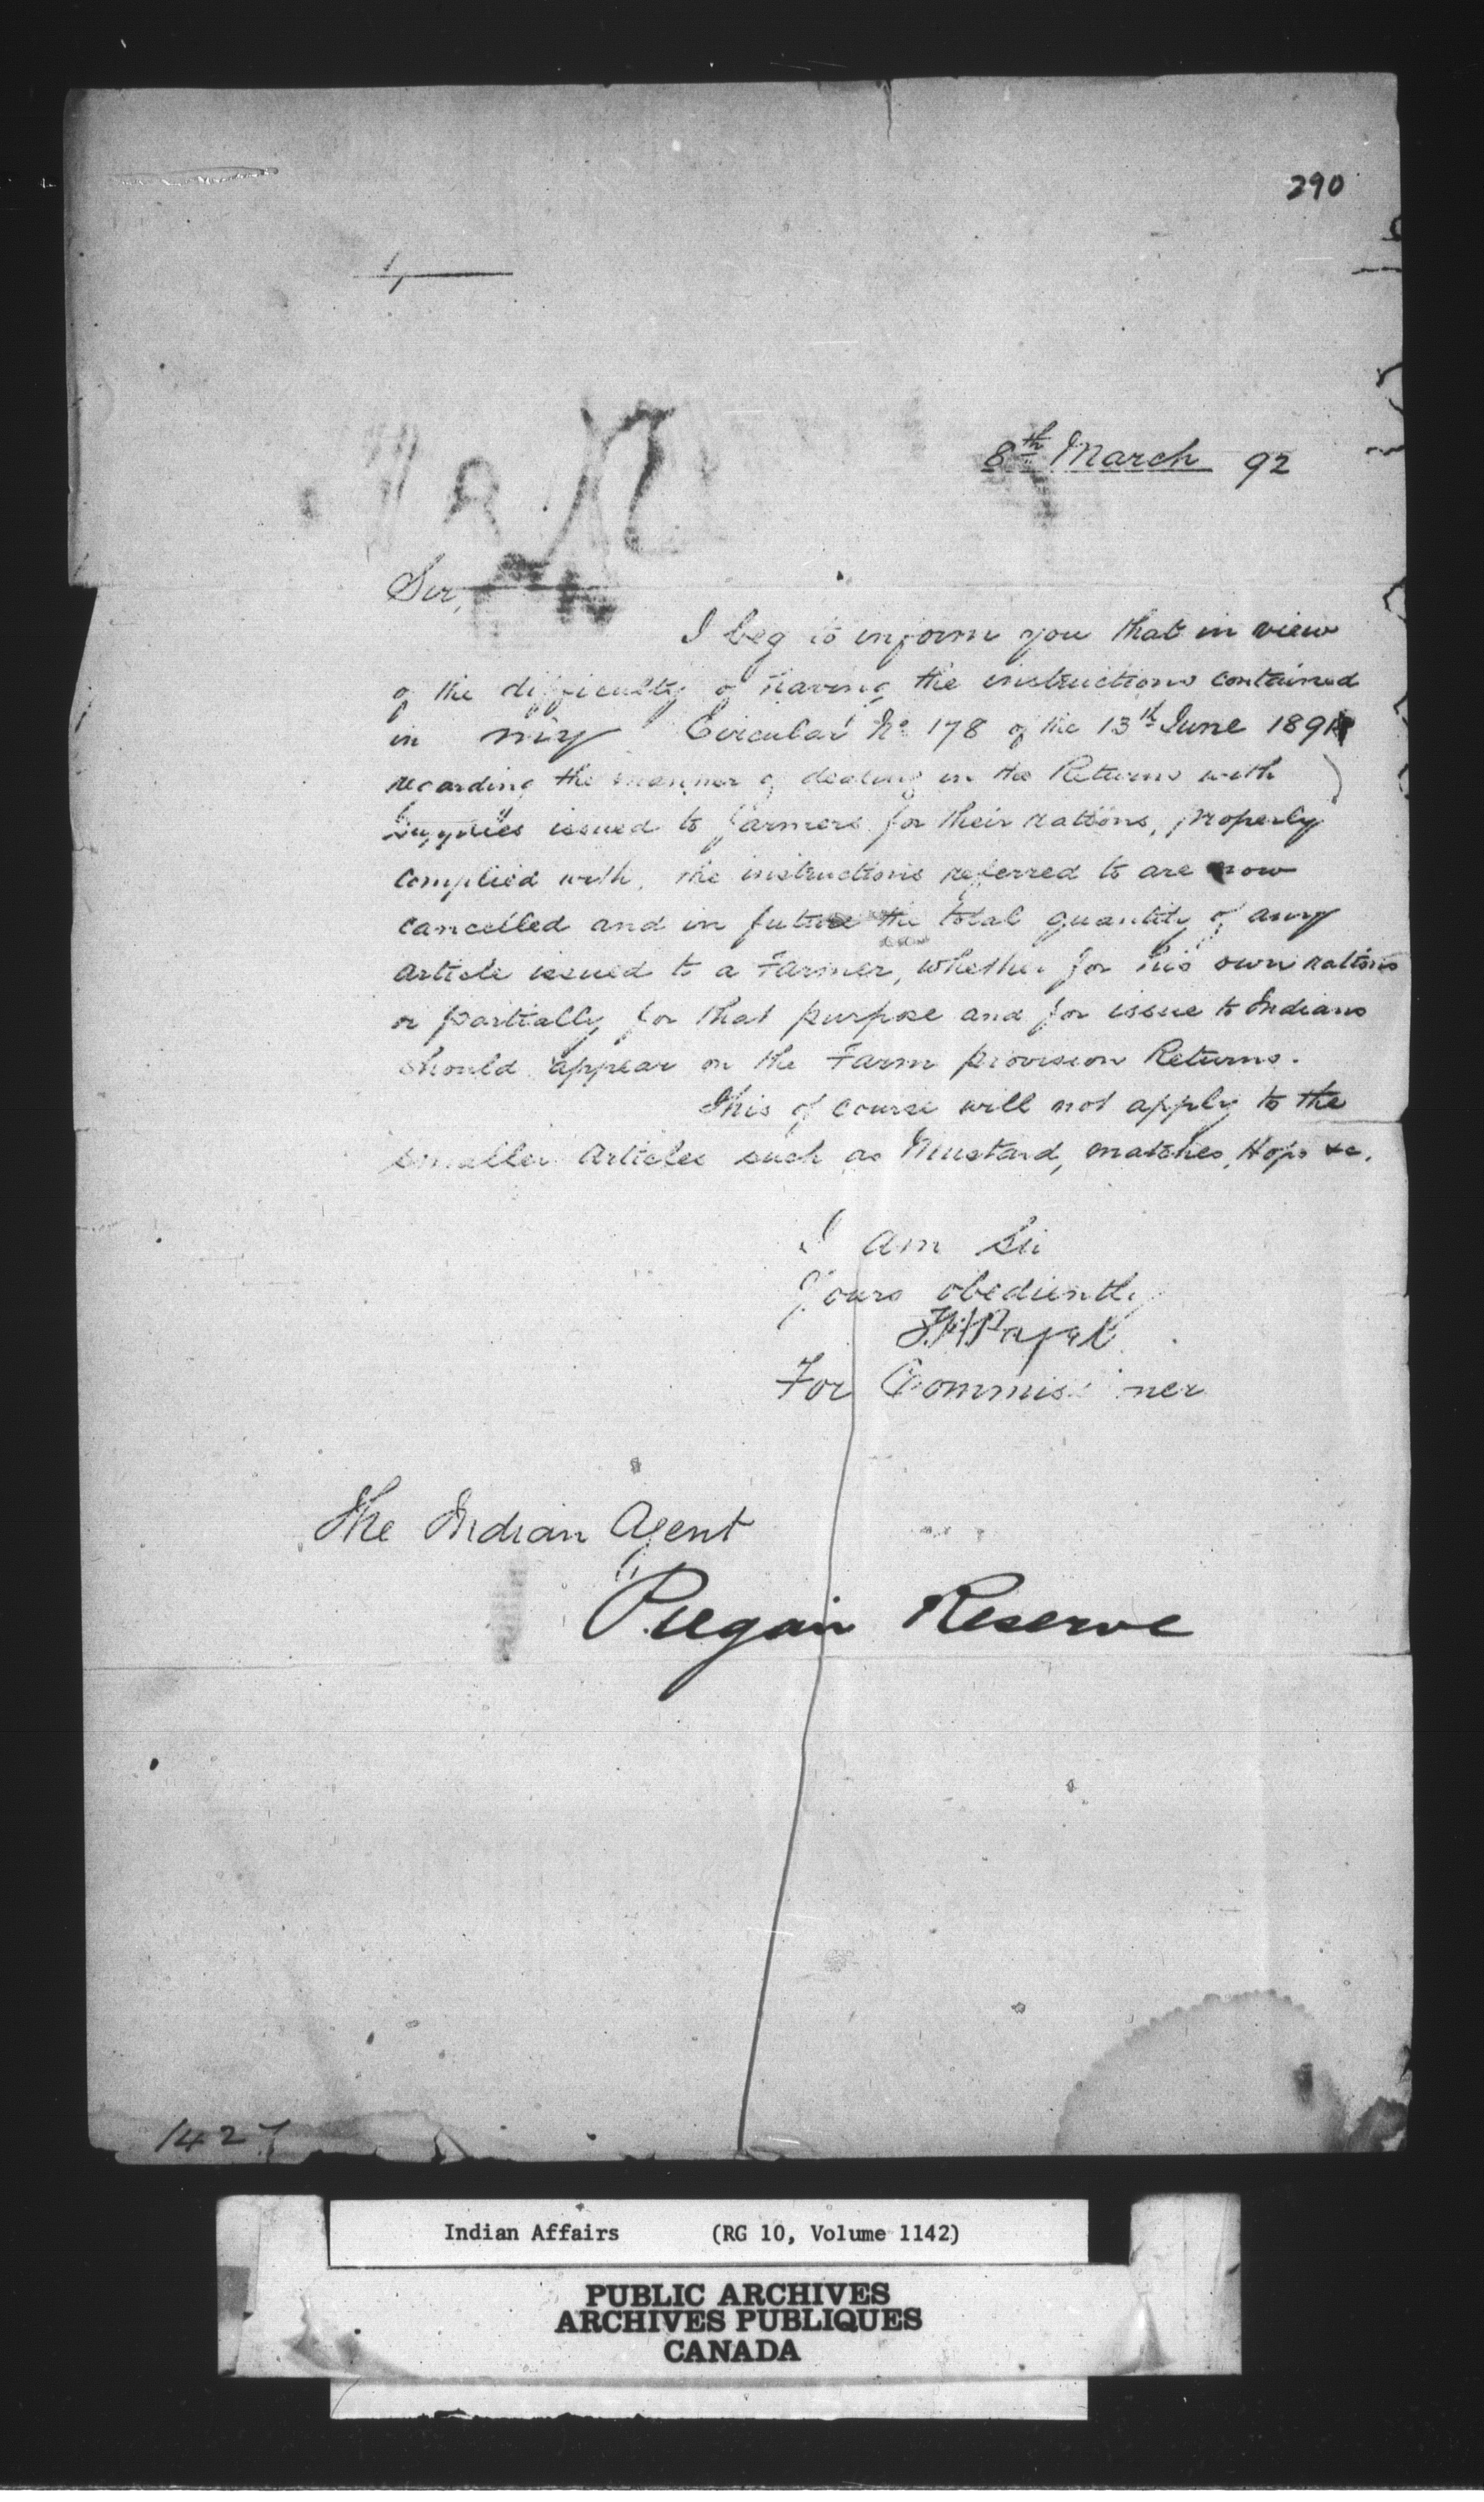 290
8th March 92
Sir,
I beg to inform you that in view
of the difficulty of having the instructions contained
in my Circular No 178 of the 13th June 1891
regarding the manner of dealing in the Returns with
Supplies issued to farmers for their rations, properly
complied with, the instructions referred to are now
cancelled and in future the total quantity of any
article issued to a Farmer, whether for his own rations
or partially for that purpose and for issue to Indians
should appear on the Farm provision Returns.
This of course will not apply to the
smaller articles such as Mustard, matches, Hops &c.
I am Sir
Yours obediently
For Commissioner
The Indian Agent
Piegan Reserve
1427
Indian Affairs (RG 10, Volume 1142)
PUBLIC ARCHIVES
ARCHIVES PUBLIQUES
CANADA